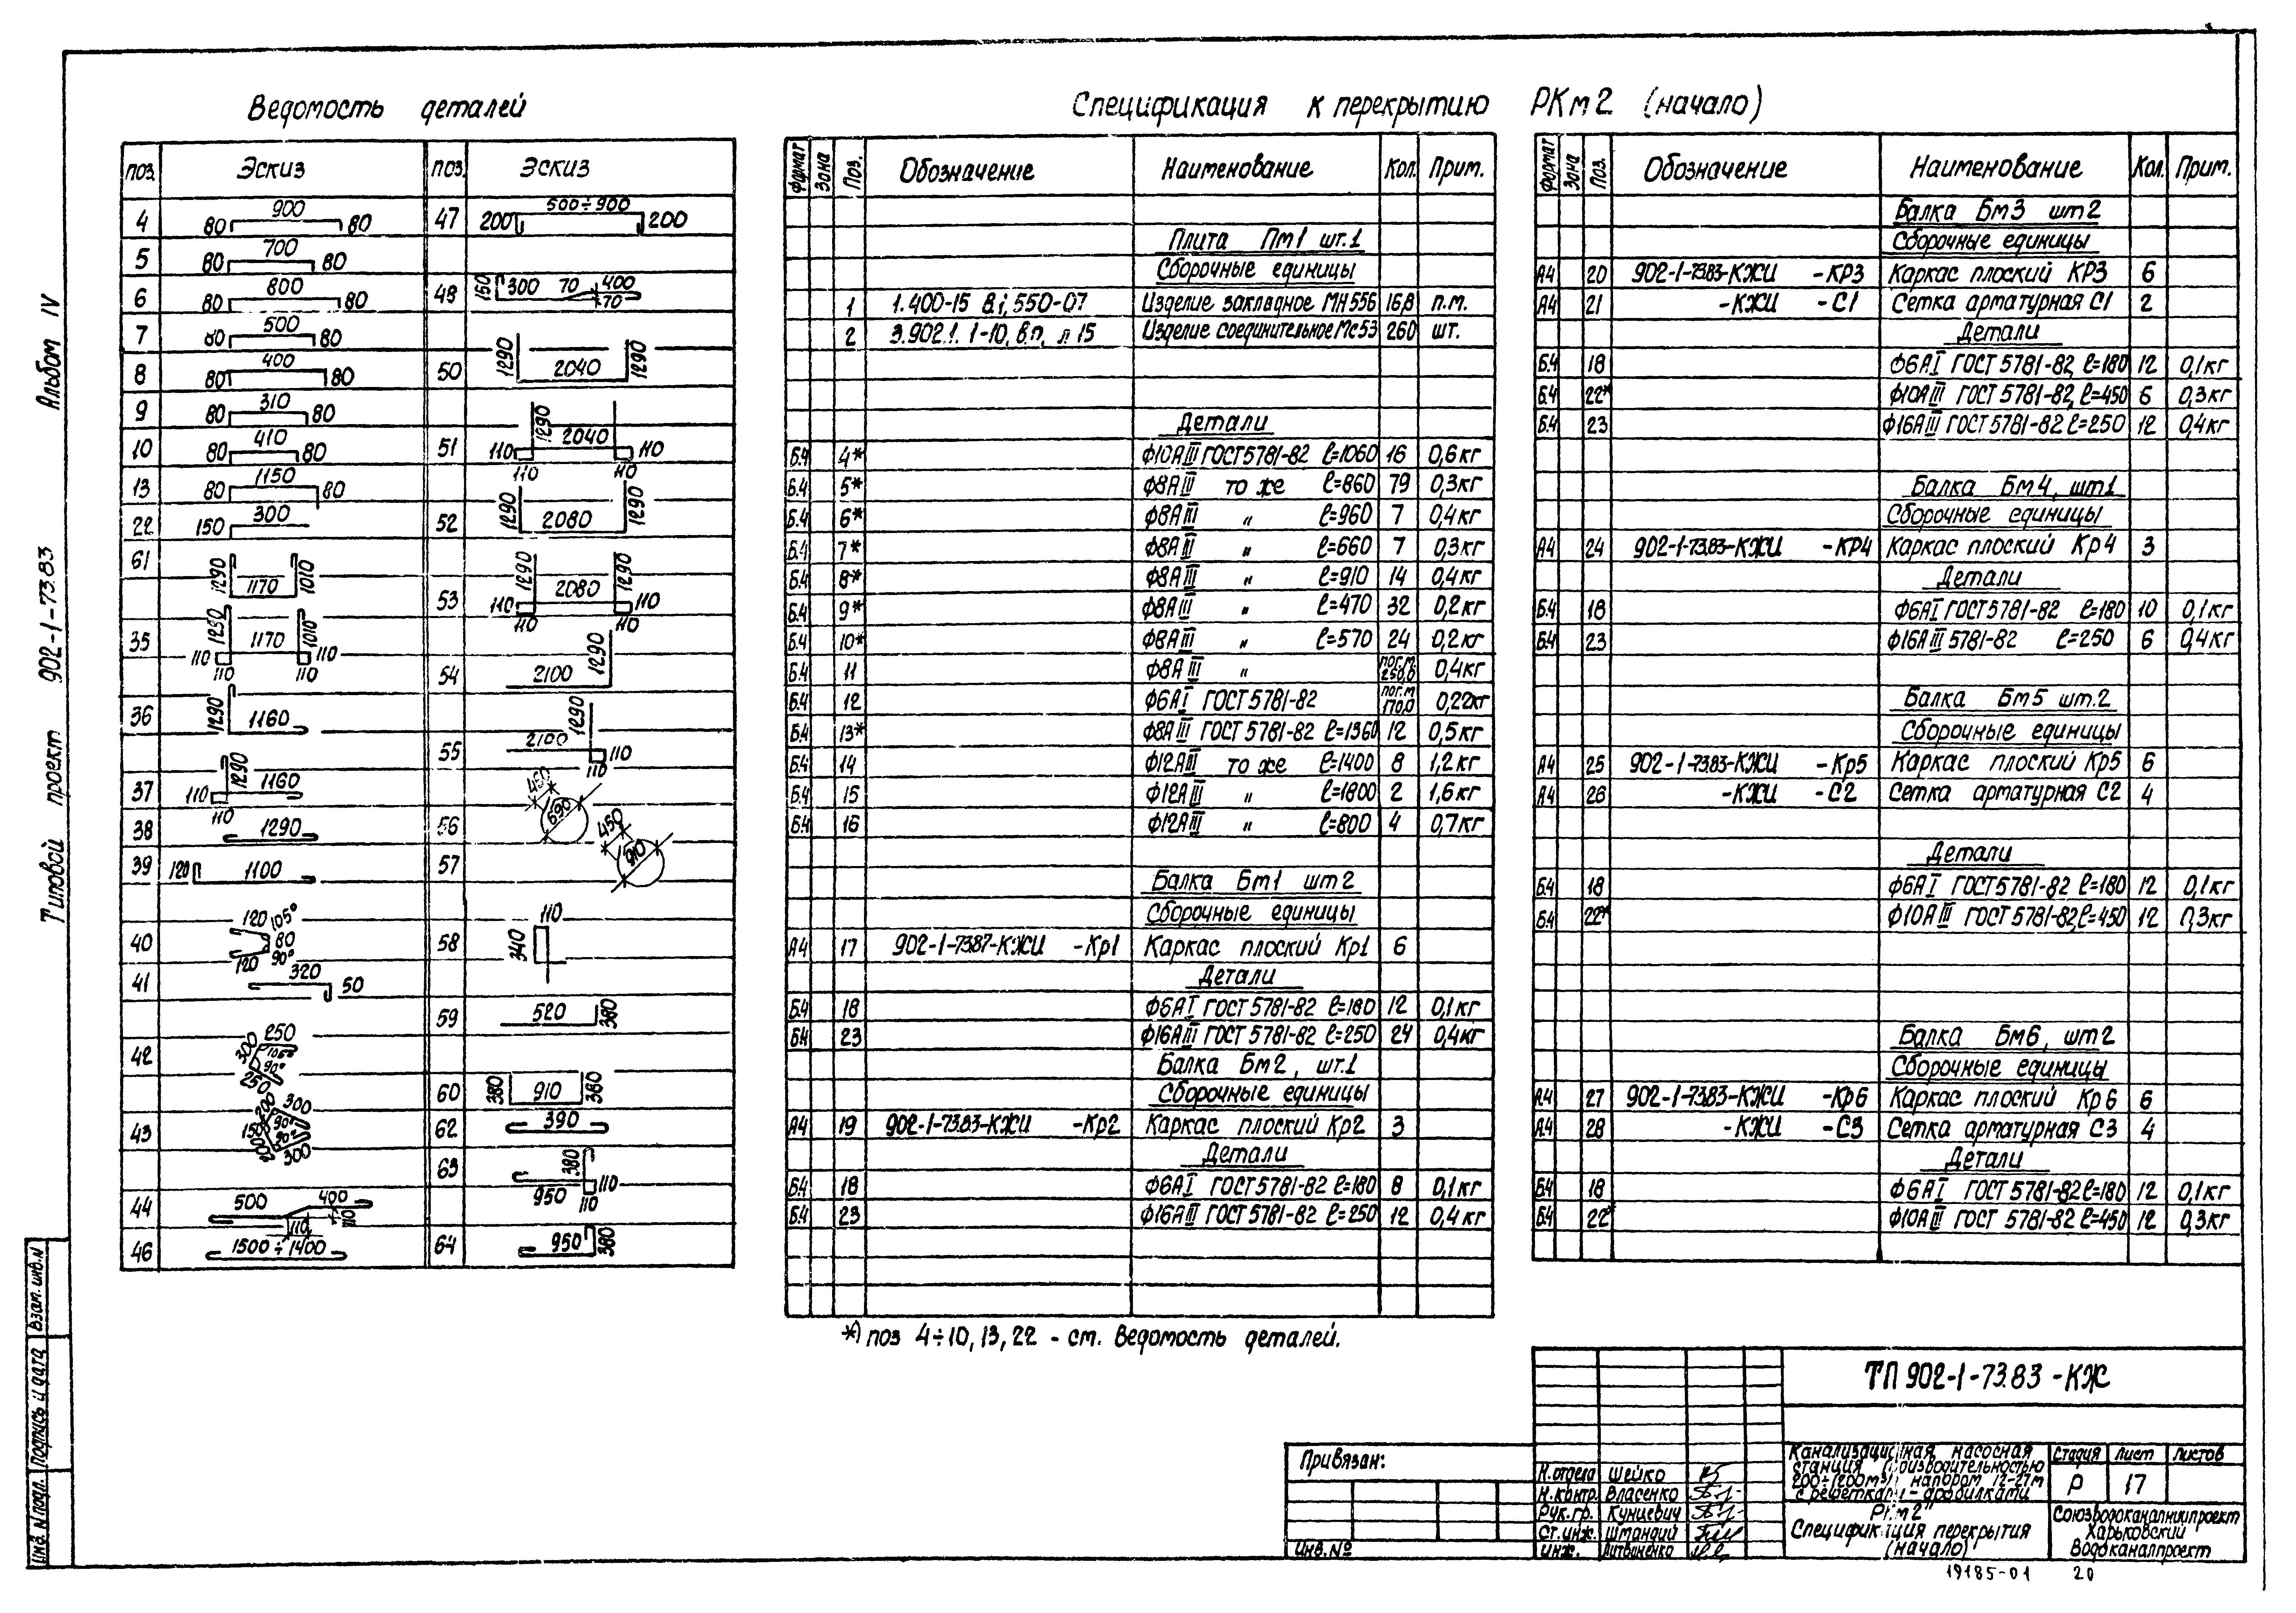 Ведомость деталей
поз. Эскиз поз. Эскиз
4 80 900 80
5 80 700 80
6 80 800 80
7 80 500 80
8 80 400 80
9 80 310 80
10 80 410 80
13 80 1150 80
22 150 300
61 1290 1170 1010
35 1290 1170 1010 110 110 110 110
36 1290 1160
37 1290 1160 110 110
38 1290
39 120 1100
40 120 105° 80 90° 120
41 320 50
42 250 300 90° 250
43 200 300 90° 150 90° 200 300
44 500 400 110 110
46 1500÷1400
47 200 500÷900 200
48 150 300 70 400 70
50 1290 2040 1290
51 1290 2040 110 110 110 110
52 1290 2080 1290
53 1290 2080 1290 110 110 110 110
54 2100 1290
55 2100 1290 110 110
56 450 690
57 450 910
58 110 340
59 520 380
60 380 910 380
62 390
63 380 950 110 110
64 950 380
Спецификация к перекрытию РКм2 (начало)
Формат Зона Поз. Обозначение Наименование Кол. Прим.
Плита Пм1 шт.1
Сборочные единицы
1 1.400-15 В.1, 550-07 Изделие закладное МН556 16,8 п.м.
2 3.902.1. 1-10, в.п, л 15 Изделие соединительное Мс53 260 шт.
Детали
Б.4 4* Ф10АIII ГОСТ 5781-82 ℓ=1060 16 0,6кг
Б.4 5* Ф8АIII то же ℓ=860 79 0,3кг
Б.4 6* Ф8АIII " ℓ=960 7 0,4кг
Б.4 7* Ф8АIII " ℓ=660 7 0,3кг
Б.4 8* Ф8АIII " ℓ=910 14 0,4кг
Б.4 9* Ф8АIII " ℓ=470 32 0,2кг
Б.4 10* Ф8АIII " ℓ=570 24 0,2кг
Б.4 11 Ф8АIII " пог.м. 250,0 0,4кг
Б.4 12 Ф6АI ГОСТ 5781-82 пог.м 170,0 0,22кг
Б.4 13* Ф8АIII ГОСТ 5781-82 ℓ=1360 12 0,5кг
Б.4 14 Ф12АIII то же ℓ=1400 8 1,2кг
Б.4 15 Ф12АIII " ℓ=1800 2 1,6кг
Б.4 16 Ф12АIII " ℓ=800 4 0,7кг
Балка Бм1 шт2
Сборочные единицы
А4 17 902-1-73.87-КЖИ -Кр1 Каркас плоский Кр1 6
Детали
Б.4 18 Ф6АI ГОСТ 5781-82 ℓ=180 12 0,1кг
Б.4 23 Ф16АIII ГОСТ 5781-82 ℓ=250 24 0,4кг
Балка Бм2, шт.1
Сборочные единицы
А4 19 902-1-73.83-КЖИ -Кр2 Каркас плоский Кр2 3
Детали
Б.4 18 Ф6АI ГОСТ 5781-82 ℓ=180 8 0,1кг
Б.4 23 Ф16АIII ГОСТ 5781-82 ℓ=250 12 0,4кг
*) поз 4÷10, 13, 22 - см. Ведомость деталей.
Формат Зона Поз. Обозначение Наименование Кол. Прим.
Балка Бм3 шт2
Сборочные единицы
А4 20 902-1-73.83-КЖИ -КР3 Каркас плоский КР3 6
А4 21 -КЖИ -С1 Сетка арматурная С1 2
Детали
Б.4 18 Ф6АI ГОСТ 5781-82, ℓ=180 12 0,1кг
Б.4 22* Ф10АIII ГОСТ 5781-82, ℓ=450 6 0,3кг
Б.4 23 Ф16АIII ГОСТ 5781-82 ℓ=250 12 0,4кг
Балка Бм4, шт1
Сборочные единицы
А4 24 902-1-73.83-КЖИ -КР4 Каркас плоский Кр4 3
Детали
Б.4 18 Ф6АI ГОСТ 5781-82 ℓ=180 10 0,1кг
Б.4 23 Ф16АIII 5781-82 ℓ=250 6 0,4кг
Балка Бм5 шт.2
Сборочные единицы
А4 25 902-1-73.83-КЖИ -Кр5 Каркас плоский Кр5 6
А4 26 -КЖИ -С2 Сетка арматурная С2 4
Детали
Б.4 18 Ф6АI ГОСТ 5781-82 ℓ=180 12 0,1кг
Б.4 22* Ф10АIII ГОСТ 5781-82, ℓ=450 12 0,3кг
Балка Бм6, шт2
Сборочные единицы
А4 27 902-1-73.83-КЖИ -Кр6 Каркас плоский Кр6 6
А4 28 -КЖИ -С3 Сетка арматурная С3 4
Детали
Б.4 18 Ф6АI ГОСТ 5781-82 ℓ=180 12 0,1кг
Б.4 22* Ф10АIII ГОСТ 5781-82 ℓ=450 12 0,3кг
Типовой проект 902-1-73.83 Альбом IV
Инв. N подл. Подпись и дата Взам. инв. N
Привязан:
Инв. №
Н.отдела Шейко
Н.контр. Власенко
Рук.гр. Кунцевич
Ст.инж. Штандий
Инж. Литвиненко
ТП 902-1-73.83 -КЖ
Канализационная насосная
станция производительностью
200÷1200м³/ч напором 12-27м
с решетками-дробилками
Стадия Лист Листов
Р 17
РКм2
Спецификация перекрытия
(начало)
Союзводоканалниипроект
Харьковский
Водоканалпроект
19185-01 20